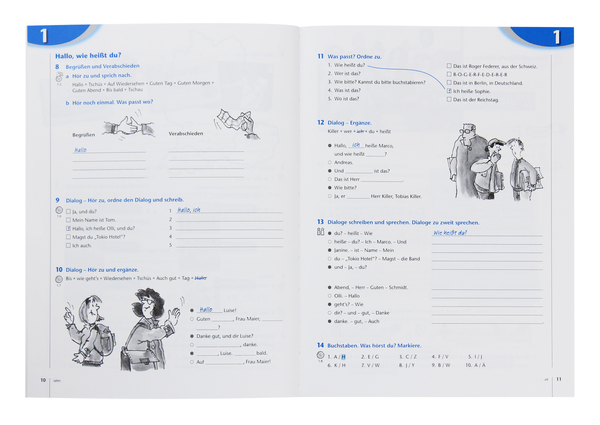 1
Hallo, wie heißt du?
8 Begrüßen und Verabschieden
a Hör zu und sprich nach.
Hallo • Tschüs • Auf Wiedersehen • Guten Tag • Guten Morgen •
Guten Abend • Bis bald • Tschau
b Hör noch einmal. Was passt wo?
Begrüßen Verabschieden
Hallo
9 Dialog – Hör zu, ordne den Dialog und schreib.
Ja, und du? 1 Hallo, ich
Mein Name ist Tom. 2
1 Hallo, ich heiße Olli, und du? 3
Magst du „Tokio Hotel“? 4
Ich auch. 5
10 Dialog – Hör zu und ergänze.
Bis • wie geht's • Wiedersehen • Tschüs • Auch gut • Tag • Hallo
Hallo Luise!
Guten , Frau Maier,
?
Danke gut, und dir Luise?
, danke.
, Luise. bald.
Auf , Frau Maier!
10
1
11 Was passt? Ordne zu.
1. Wie heißt du? Das ist Roger Federer, aus der Schweiz.
2. Wer ist das? R-O-G-E-R-F-E-D-E-R-E-R
3. Wie bitte? Kannst du bitte buchstabieren? Das ist in Berlin, in Deutschland.
4. Was ist das? 1 Ich heiße Sophie.
5. Wo ist das? Das ist der Reichstag.
12 Dialog – Ergänze.
Killer • wer • ich • du • heißt
Hallo, ich heiße Marco,
und wie heißt ?
Andreas.
Und ist das?
Das ist Herr
Wie bitte?
Ja, er Herr Killer, Tobias Killer.
13 Dialoge schreiben und sprechen. Dialoge zu zweit sprechen.
du? – heißt – Wie Wie heißt du?
heiße – du? – Ich – Marco. – Und
Janine. – ist – Name – Mein
du – „Tokio Hotel“? – Magst – die Band
und – Ja, – du?
Abend, – Herr – Guten – Schmidt.
Olli. – Hallo
geht's? – Wie
dir? – und – gut, – Danke
danke. – gut, – Auch
14 Buchstaben. Was hörst du? Markiere.
1. A / H 2. E / G 3. C / Z 4. F / V 5. I / J
6. K / H 7. V / W 8. J / Y 9. B / W 10. A / Ä
11